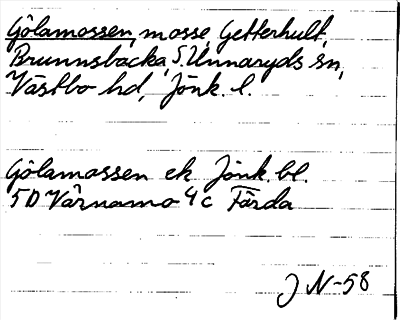 Gölamossen, mosse, Getterhult,
Brunnsbacka, S. Unnaryds sn,
Västbo hd, Jönk. l.
Gölamossen ek Jönk. bl.
5D Värnamo 4c Färda
J N-58